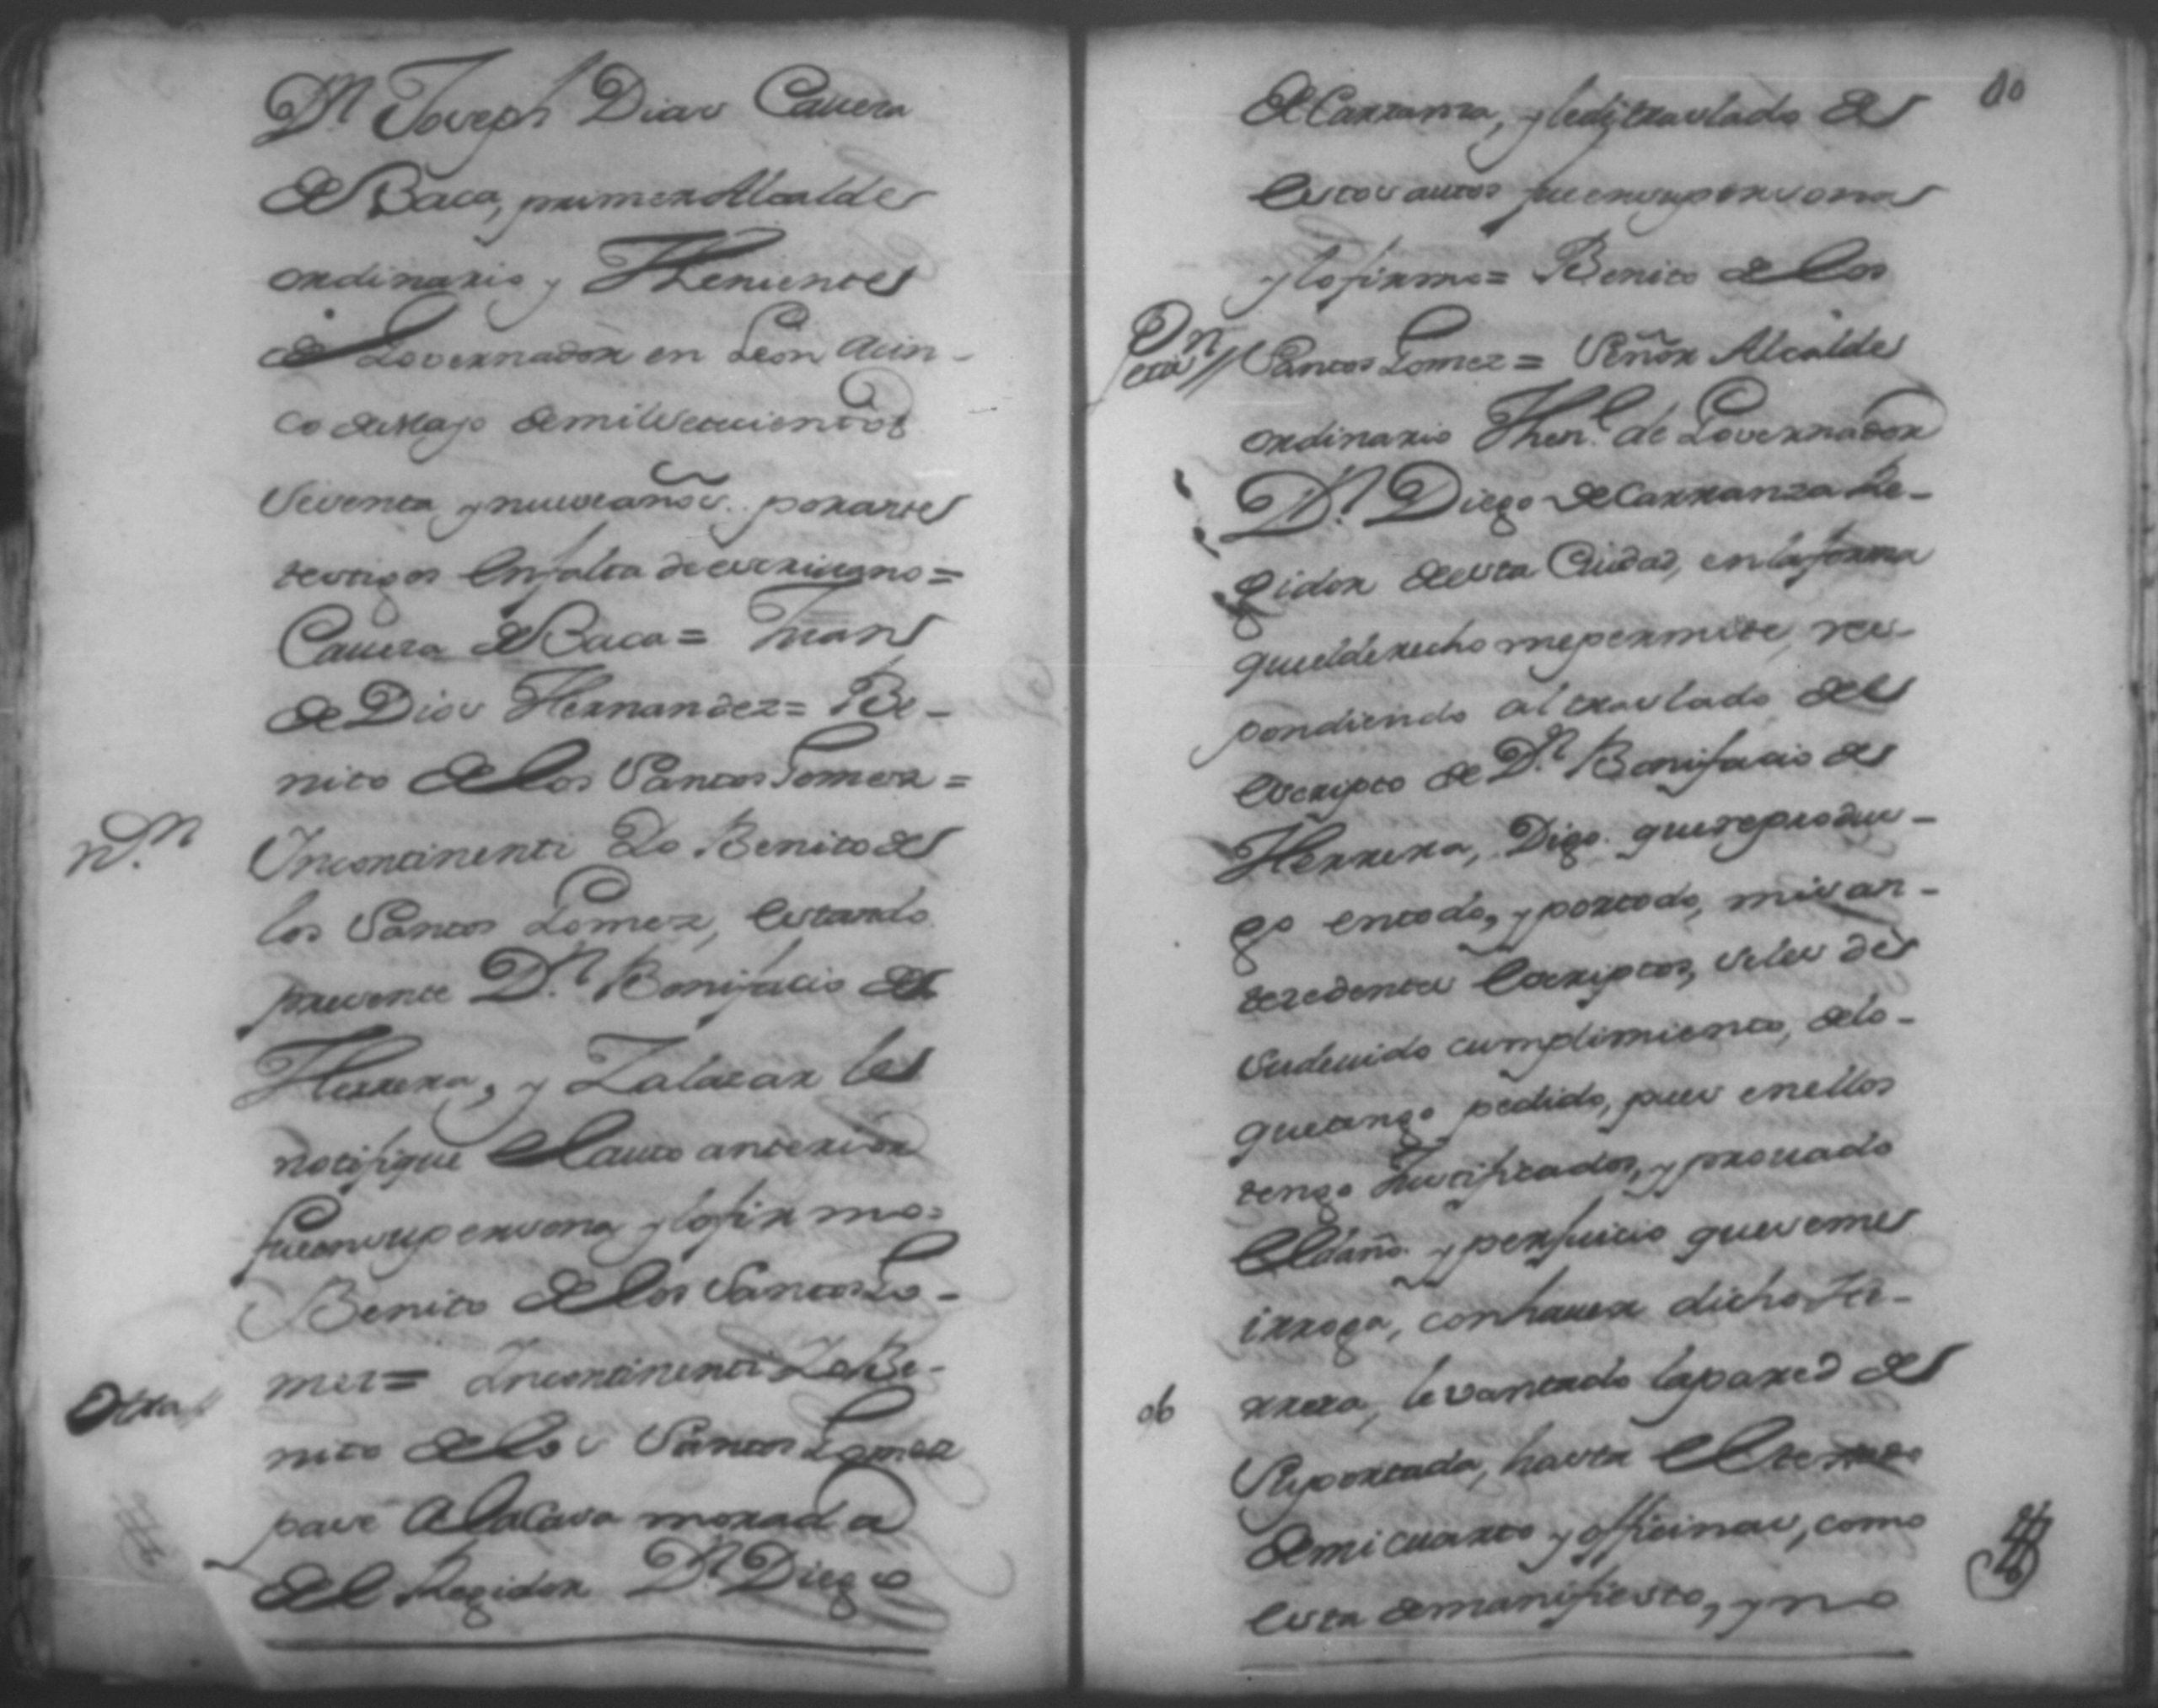 Dn. Joseph Dias Cauesa
de Baca, primer Alcalde
ordinario y Theniente
de Governador en Leon acin-
co de Mayo de mil setecientos
sesenta y nueve años. por ante
testigos en falta de escriuano=
Cauesa de Baca= Juan
de Dios Hernandez= Be-
nito de los Santos Gomez=
Nn.
Yncontinenti Yo Benito de
los Santos Gomez, estando
presente Dn. Bonifacio de
Herrera, y Zalazar le
notifique el auto anterior
fue en su persona y lo firmo=
Benito de los Santos Go-
mez= Yncontinenti Yo Be-
Otra
nito de los Santos Gomez
pase a la casa morada
del Regidor Dn. Diego
10
de Carranza, y le di traslado de
estos autos fue en su persona
y lo firmo= Benito de los
Santos Gomez= Señor Alcalde
ordinario Thene. de Governador
Dn. Diego de Carranza Re-
gidor de esta Ciudad, en la forma
que el derecho me permite, res-
pondiendo al traslado del
escripto de Dn. Bonifacio de
Herrera, Digo. que reprodus-
go en todo, y por todo, mis an-
tezedentes escriptos, se les de
su deuido cumplimiento, de lo-
que tengo pedido, pues en ellos
tengo Justificados, y prouado
el daño y perjuicio que se me
irroga, con hauer dicho He-
rrera, levantado la pared de
ob
su portada, hasta el
de mi cuarto y officinas, como
esta de manifiesto, y no